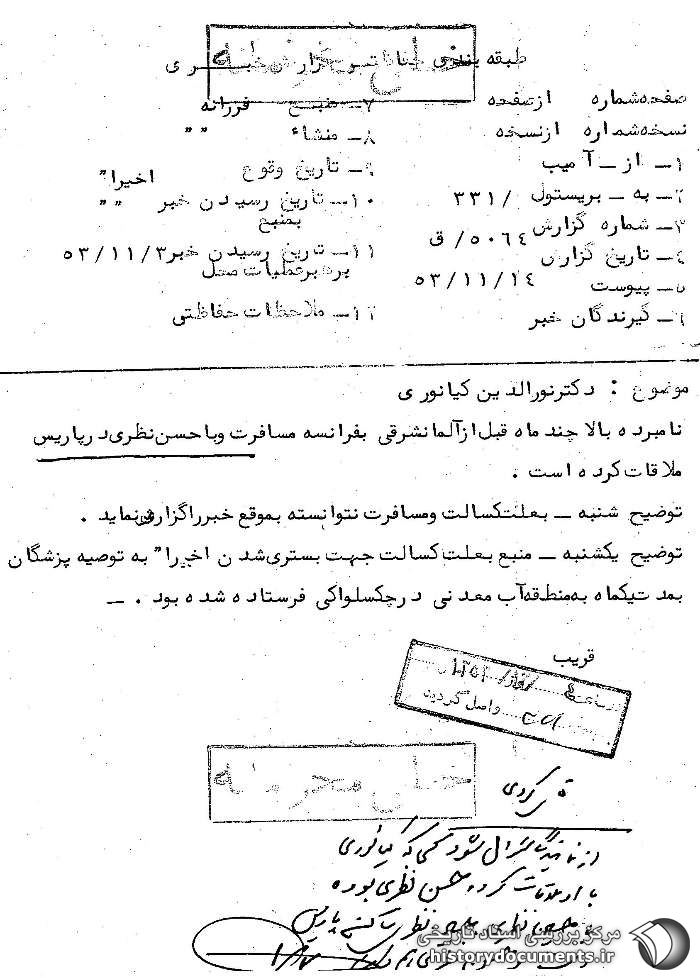 خیلی محرمانه
طبقه بندی گزارش خبری
صفحه شماره از صفحه
نسخه شماره از نسخه
۱ــ از ــ آ میب
۲ــ به ــ بریستول /۳۳۱
۳ــ شماره گزارش ۵۰۶۴/ق
۴ــ تاریخ گزارش ۵۳/۱۱/۱۴
۵ــ پیوست
۶ــ گیرندگان خبر
۷ــ منبع فرزانه
۸ــ منشاء " "
۹ــ تاریخ وقوع اخیرا"
۱۰ــ تاریخ رسیدن خبر " "
بمنبع
۱۱ــ تاریخ رسیدن خبر ۵۳/۱۱/۳
برهبر عملیات محل
۱۲ــ ملاحظات حفاظتی
موضوع : دکترنورالدین کیانوری
نامبرده بالا چند ماه قبل ازآلمانشرقی بفرانسه مسافرت وباحسن نظری درپاریس
ملاقات کرده است .
توضیح شنبه ــ بعلت کسالت ومسافرت نتوانسته بموقع خبرراگزارش نماید .
توضیح یکشنبه ــ منبع بعلت کسالت جهت بستری شدن اخیرا" به توصیه پزشگان
بمدت یکماه به منطقه آب معدنی درچکسلواکی فرستاده شده بود . ــ
قریب
واصل گردید
خیلی محرمانه
از نمایندگی سئوال شود کسی که کیانوری
با او ملاقات کرده حسن نظری بوده
مرکز بررسی اسناد تاریخی
historydocuments.ir